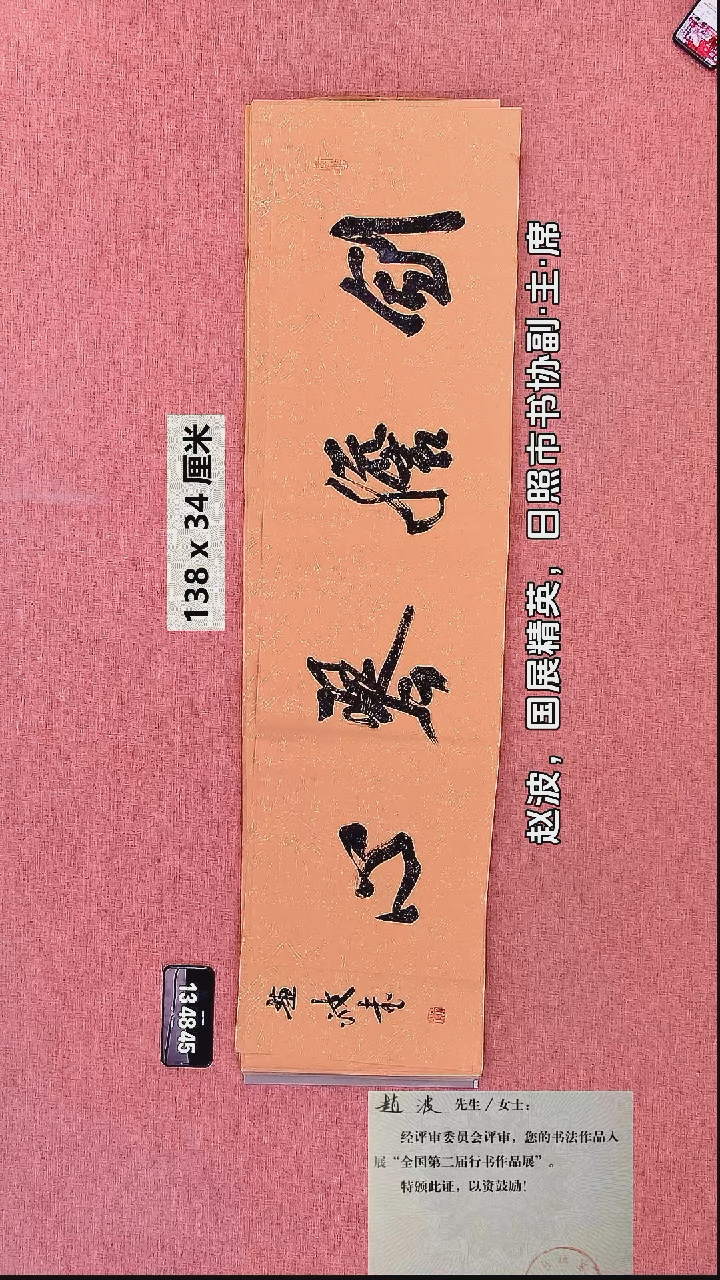 劍膽琴心
趙波書
138 x 34 厘米
赵波，国展精英，日照市书协副·主·席
13:48:45
趙波 先生／女士：
经评审委员会评审，您的书法作品入
展“全国第二届行书作品展”。
特颁此证，以资鼓励！